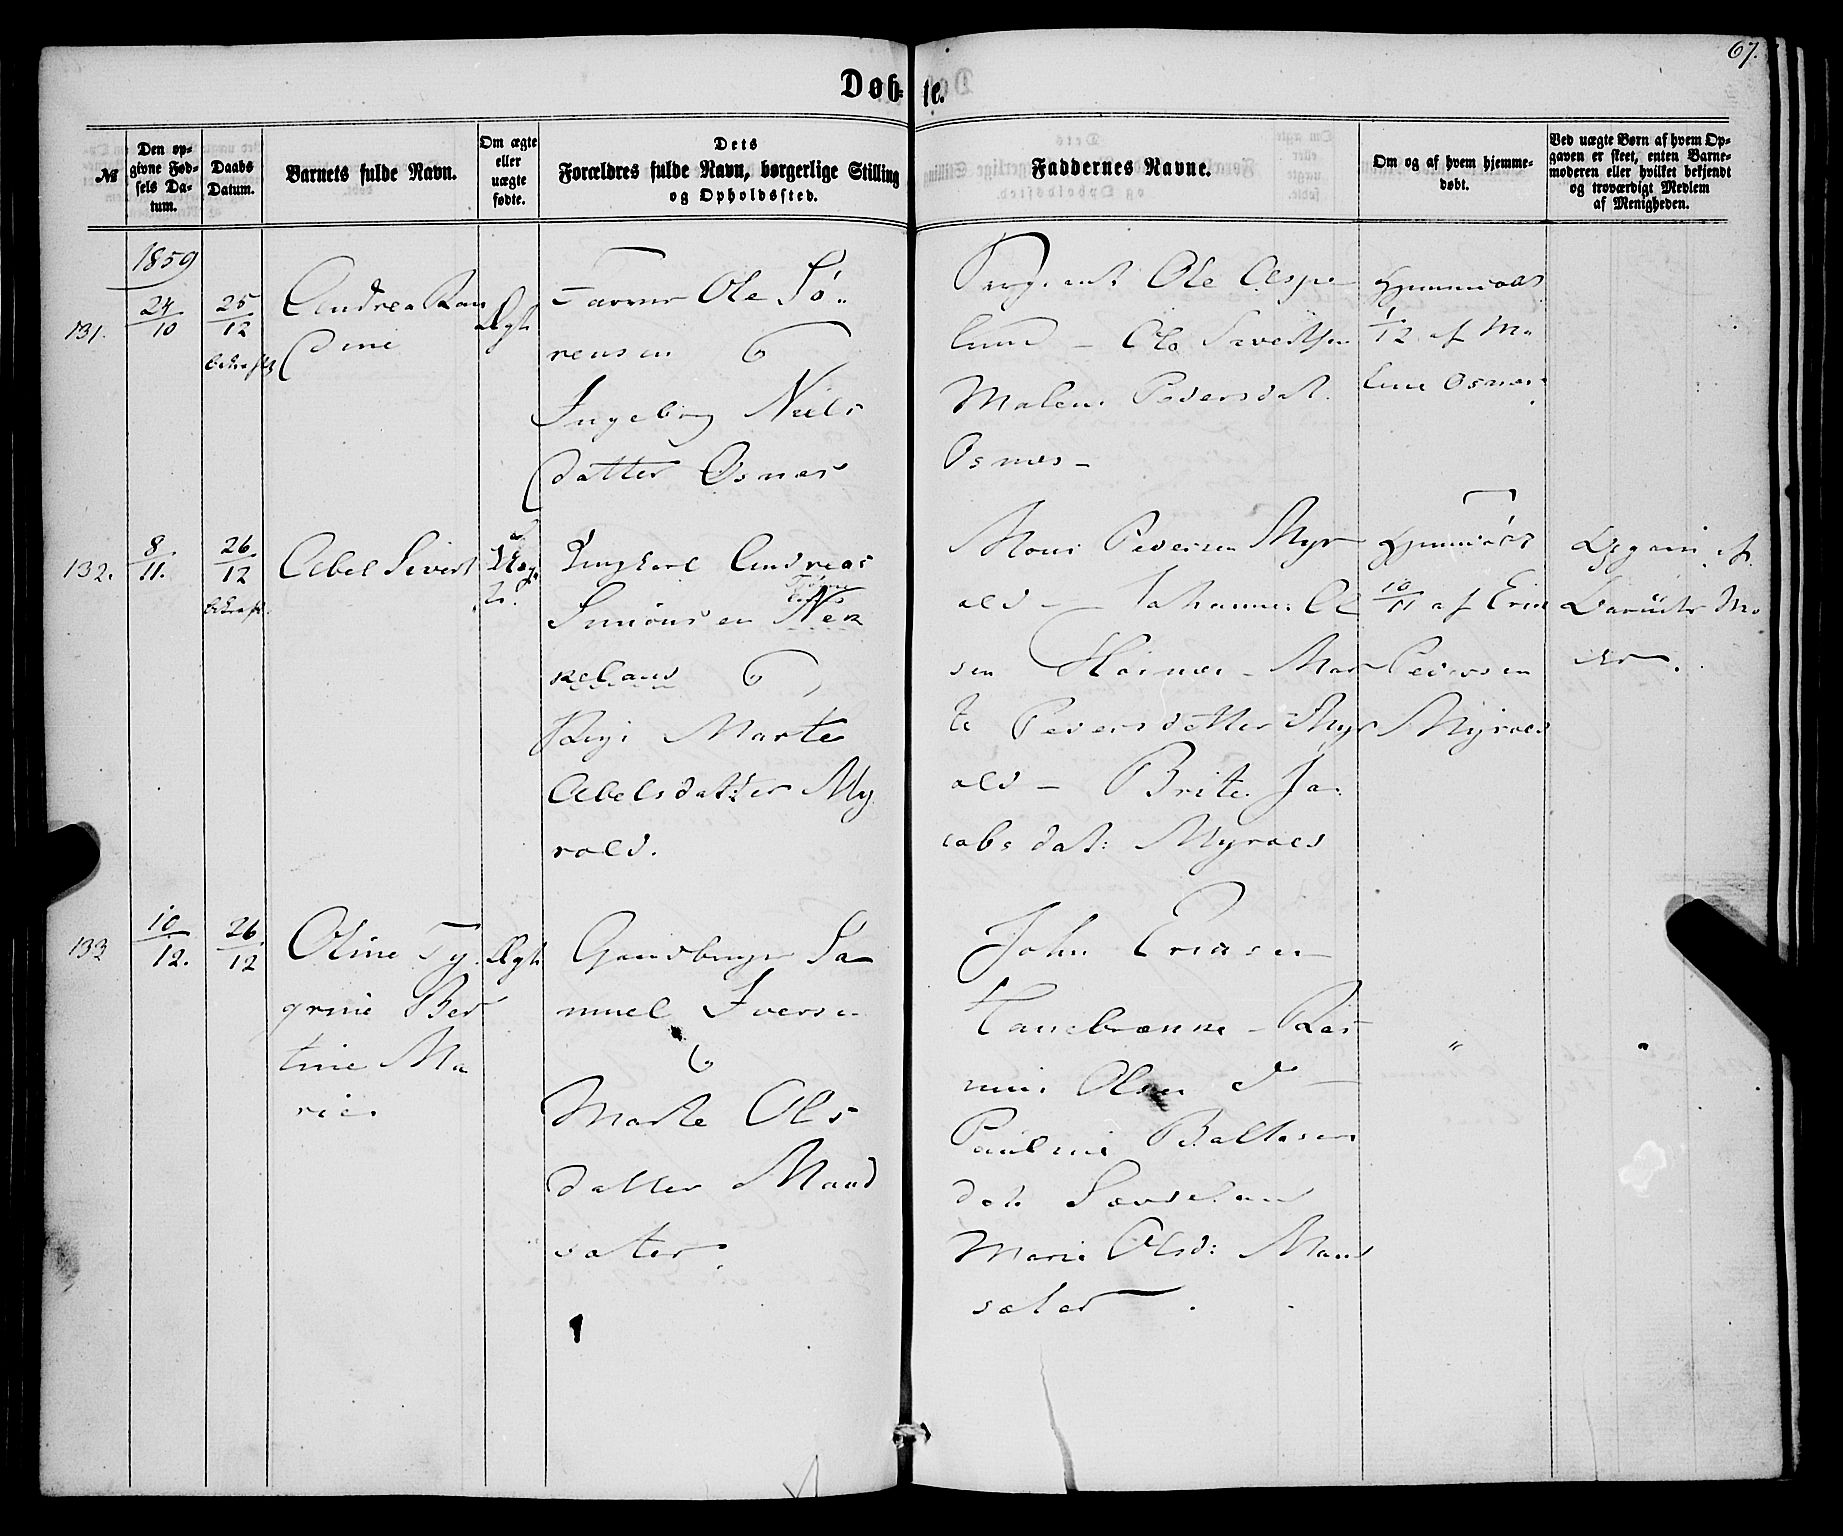 67.
Døb-te.
№
Den op-
givne Fød-
sels Da-
tum.
Daabs
Datum.
Barnets fulde Navn.
Om ægte
eller
uægte
fødte.
Dets
Forældres fulde Navn, borgerlige Stilling
og Opholdssted.
Faddernes Navne.
Om og af hvem hjemme-
døbt.
Ved uægte Børn af hvem Op-
gaven er skeet, enten Barne-
moderen eller hvilket bekjendt
og troværdigt Medlem
af Menigheden.
1859
131.
24/10
25/12
Andrea Ran
dine
Ægt
Ole Sø-
rensen
Ingebrg Niels
datter Osnæs
Ole Aspe
lund – Ole Sivertsen
Malene Pedersdat.
Osnæs –
Hjemmedøbt
1/12 af Ma
lene Osnæs
132.
8/11.
26/12
Abel Sivert
Ungkarl Andreas
Simonsen Nek
kelans
Pige Marte
Abelsdatter My
rold.
Mons Pedersen Myr
old – Johannes Ol
sen Hoinæs – Mar
te Pedersdatter Myr
old – Brite Ja-
cobsdat: Myrold
Hjemmedøbt
10/11 af Erik
Pedersen
Myrold
Opgivn. af
Barnets Mo
der.
133
10/12.
26/12
Oline Ty
grine Ber
tine Ma
rie
Ægt
Gaardbruger Sa
muel Iversen
Marte Ols
datter Mand
sæter.
John Eriksen
– Ras
mus Olsen d –
Pauline Baltasers
dat.
Marie Olsd: Mand
sæter.
"
"